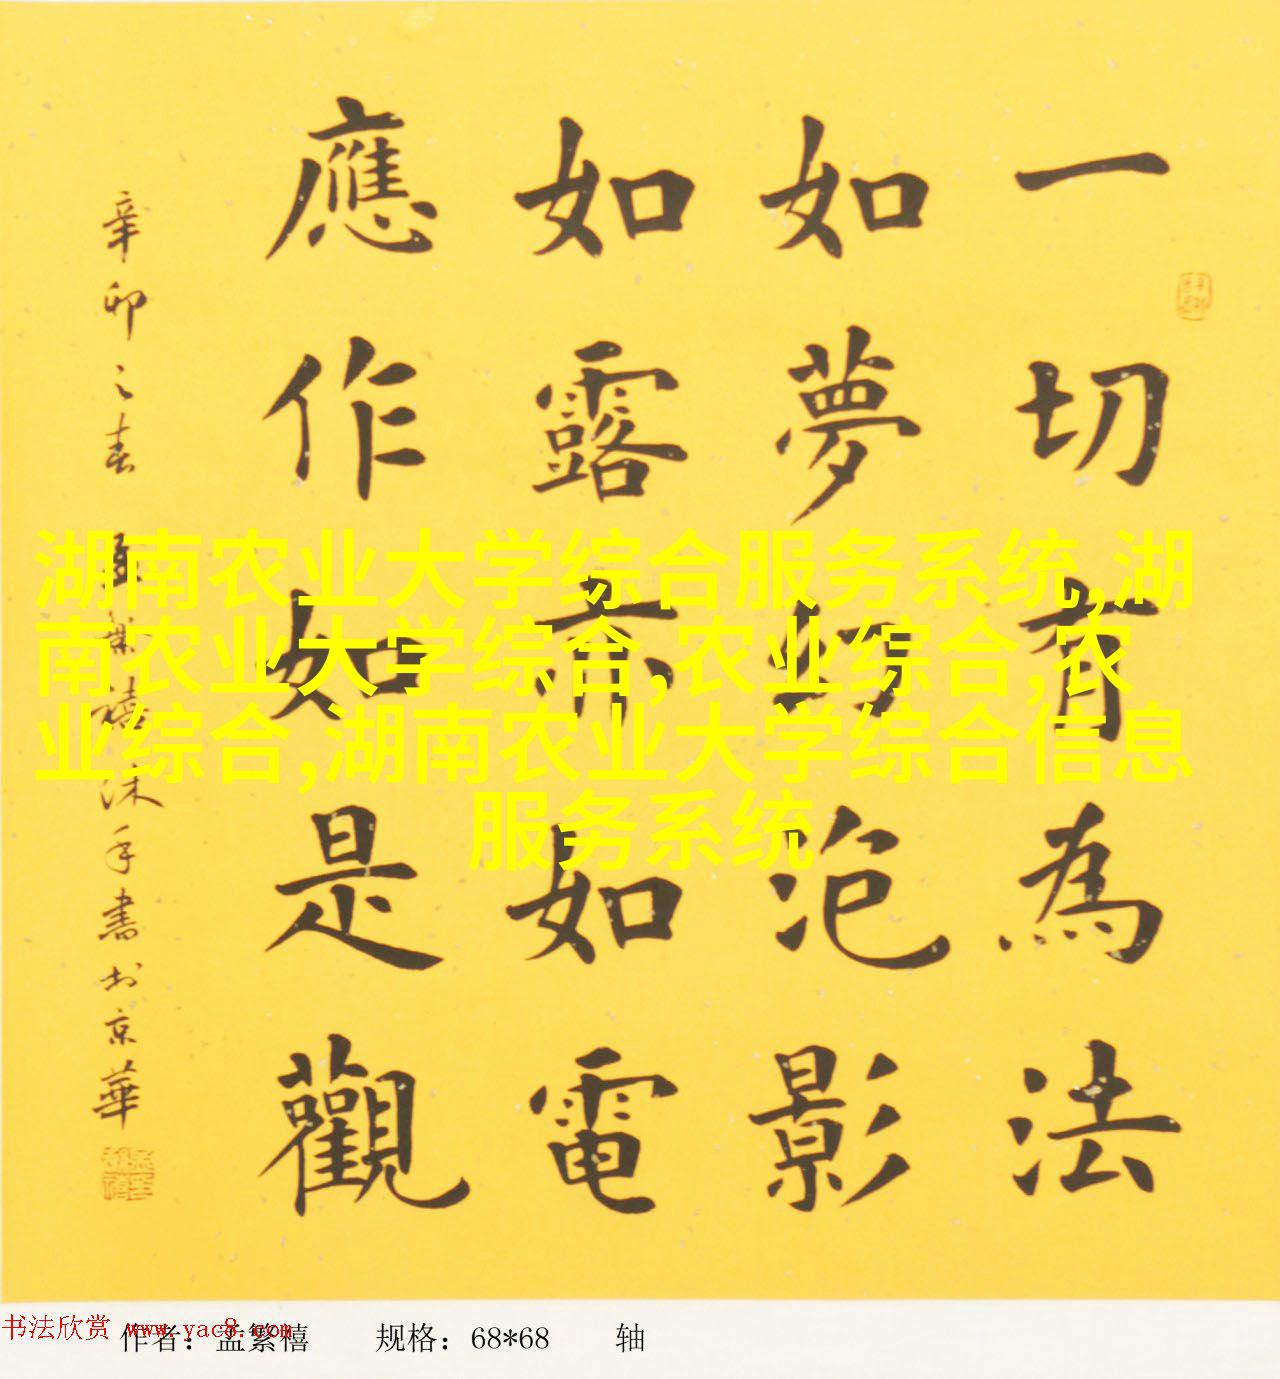 一切有為法
如夢幻泡影
如露亦如電
應作如是觀
辛卯之春 孟繁禧沐手書於京華
湖南农业大学综合服务系统,湖
南农业大学综合,农业综合,农
业综合,湖南农业大学综合信息
服务系统
书法欣赏 www.yac8.com
作者：孟繁禧 规格：68*68 轴